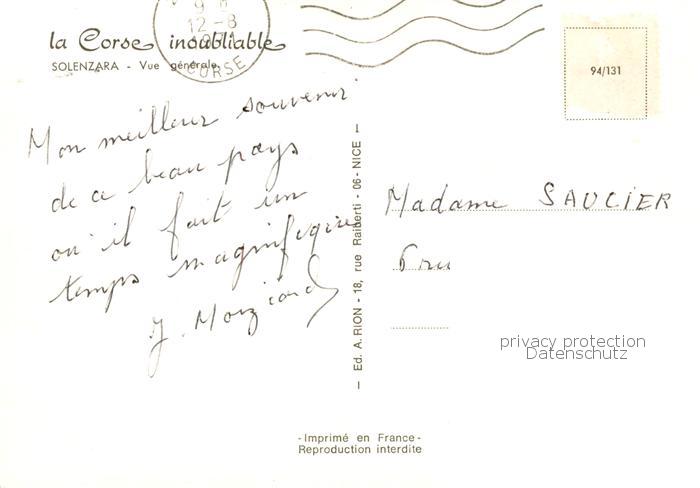 la Corse inoubliable
SOLENZARA - Vue générale
12-8
CORSE
94/131
Mon meilleur souvenir
de ce beau pays
où il fait un
temps magnifique
J.
Madame SAUCIER
— Ed. A. RION - 18, rue Raiberti - 06 - NICE —
privacy protection
Datenschutz
- Imprimé en France -
Reproduction interdite